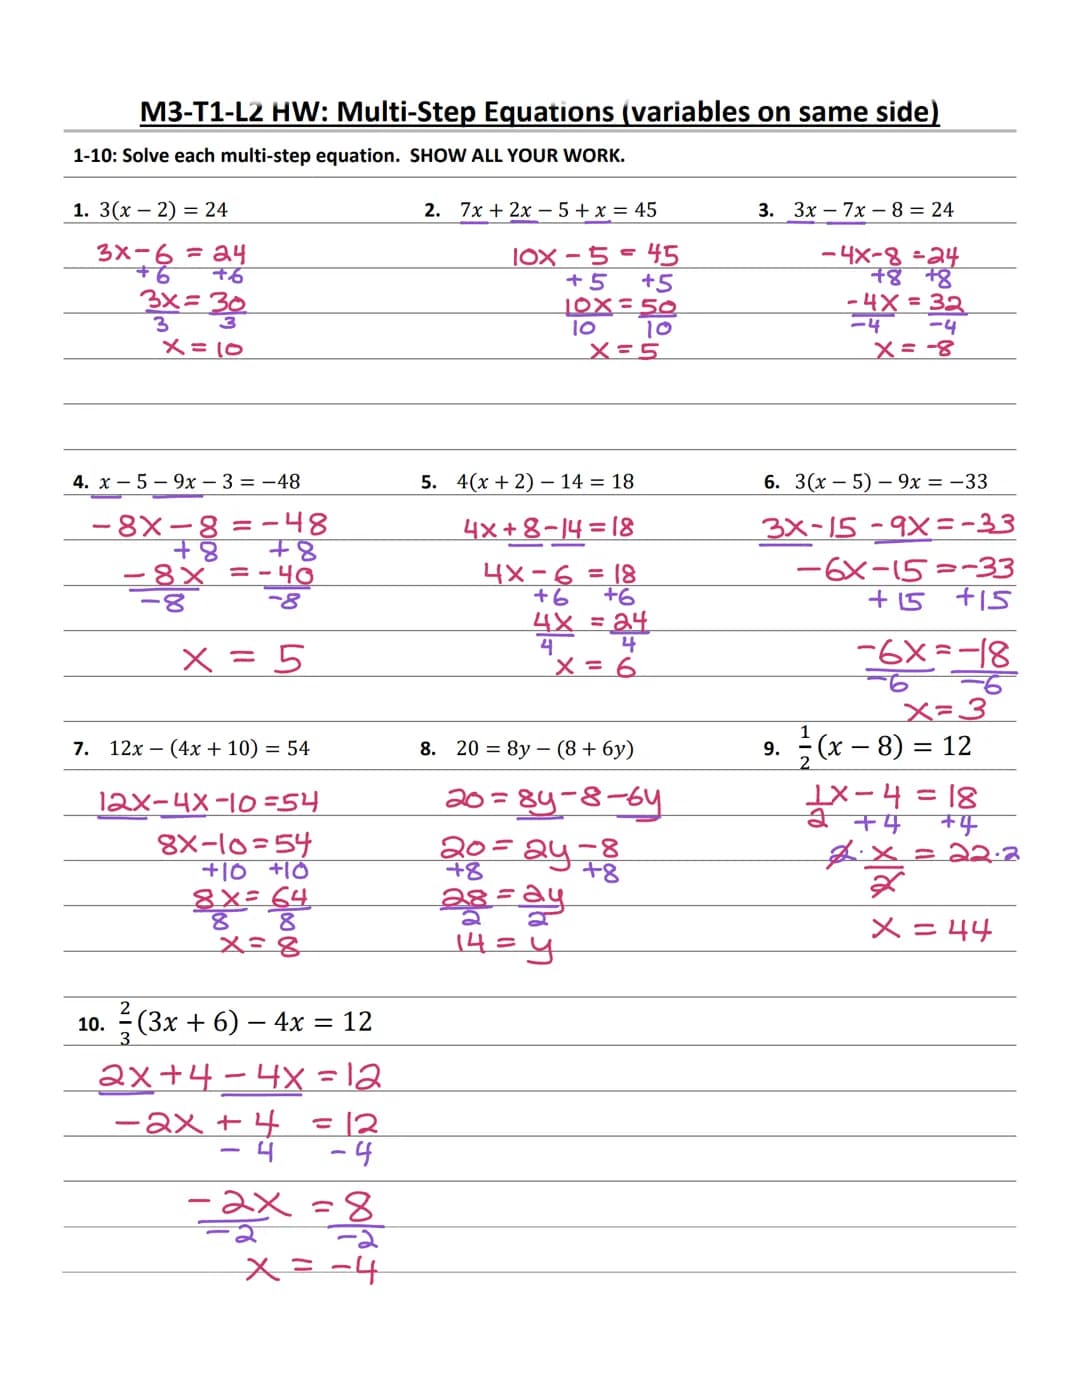 M3-T1-L2 HW: Multi-Step Equations (variables on same side)
1-10: Solve each multi-step equation. SHOW ALL YOUR WORK.
1. 3(x − 2) = 24
3x-6 = 24
+6 +6
3x = 30
3 3
x = 10
2. 7x + 2x − 5 + x = 45
10x - 5 = 45
+5 +5
10x = 50
10 10
x = 5
3. 3x − 7x − 8 = 24
-4x-8 = 24
+8 +8
-4x = 32
-4 -4
x = -8
4. x − 5 − 9x − 3 = −48
-8x - 8 = -48
+8 +8
-8x = -40
-8 -8
x = 5
5. 4(x + 2) − 14 = 18
4x+8-14=18
4x-6 = 18
+6 +6
4x = 24
4 4
x = 6
6. 3(x − 5) − 9x = −33
3x-15 -9x=-33
-6x-15=-33
+15 +15
-6x=-18
-6 -6
x=3
7. 12x − (4x + 10) = 54
12x-4x-10=54
8x-10=54
+10 +10
8x= 64
8 8
x= 8
8. 20 = 8y − (8 + 6y)
20= 8y-8-6y
20= 2y-8
+8 +8
28 = 2y
2 2
14 = y
9. 1/2 (x − 8) = 12
1/2 x-4 = 18
+4 +4
2 · x/2 = 22·2
x = 44
10. 2/3 (3x + 6) − 4x = 12
2x+4-4x=12
-2x + 4 = 12
- 4 -4
-2x = 8
-2 -2
x = -4